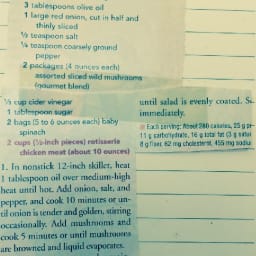 3 tablespoons olive oil
1 large red onion, cut in half and
thinly sliced
½ teaspoon salt
¼ teaspoon coarsely ground
pepper
2 packages (4 ounces each)
assorted sliced wild mushrooms
(gourmet blend)
⅓ cup cider vinegar
1 tablespoon sugar
2 bags (5 to 6 ounces each) baby
spinach
2 cups (½-inch pieces) rotisserie
chicken meat (about 10 ounces)
1. In nonstick 12-inch skillet, heat
1 tablespoon oil over medium-high
heat until hot. Add onion, salt, and
pepper, and cook 10 minutes or un-
til onion is tender and golden, stirring
occasionally. Add mushrooms and
cook 5 minutes or until mushrooms
are browned and liquid evaporates.
until salad is evenly coated. S
immediately.
Each serving: About 280 calories, 25 g pr
11 g carbohydrate, 16 g total fat (3 g satur
8 g fiber, 62 mg cholesterol, 455 mg sodiu